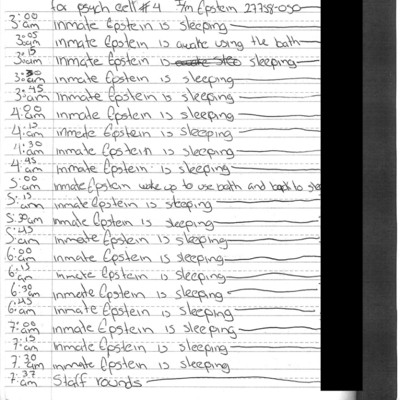 for psych cell #4 I/m Epstein
3:00 am inmate Epstein is sleeping
3:05 am inmate Epstein is awake using the bath
3:15 am inmate Epstein is sleeping
3:30 am inmate Epstein is sleeping
3:45 am inmate Epstein is sleeping
4:00 am inmate Epstein is sleeping
4:15 am inmate Epstein is sleeping
4:30 am inmate Epstein is sleeping
4:45 am inmate Epstein is sleeping
5:00 am inmate Epstein woke up to use bath and back to slee
5:15 am inmate Epstein is sleeping
5:30 am inmate Epstein is sleeping
5:45 am inmate Epstein is sleeping
6:00 am inmate Epstein is sleeping
6:15 am inmate Epstein is sleeping
6:30 am inmate Epstein is sleeping
6:45 am inmate Epstein is sleeping
7:00 am inmate Epstein is sleeping
7:15 am inmate Epstein is sleeping
7:30 am inmate Epstein is sleeping
7:37 am Staff rounds